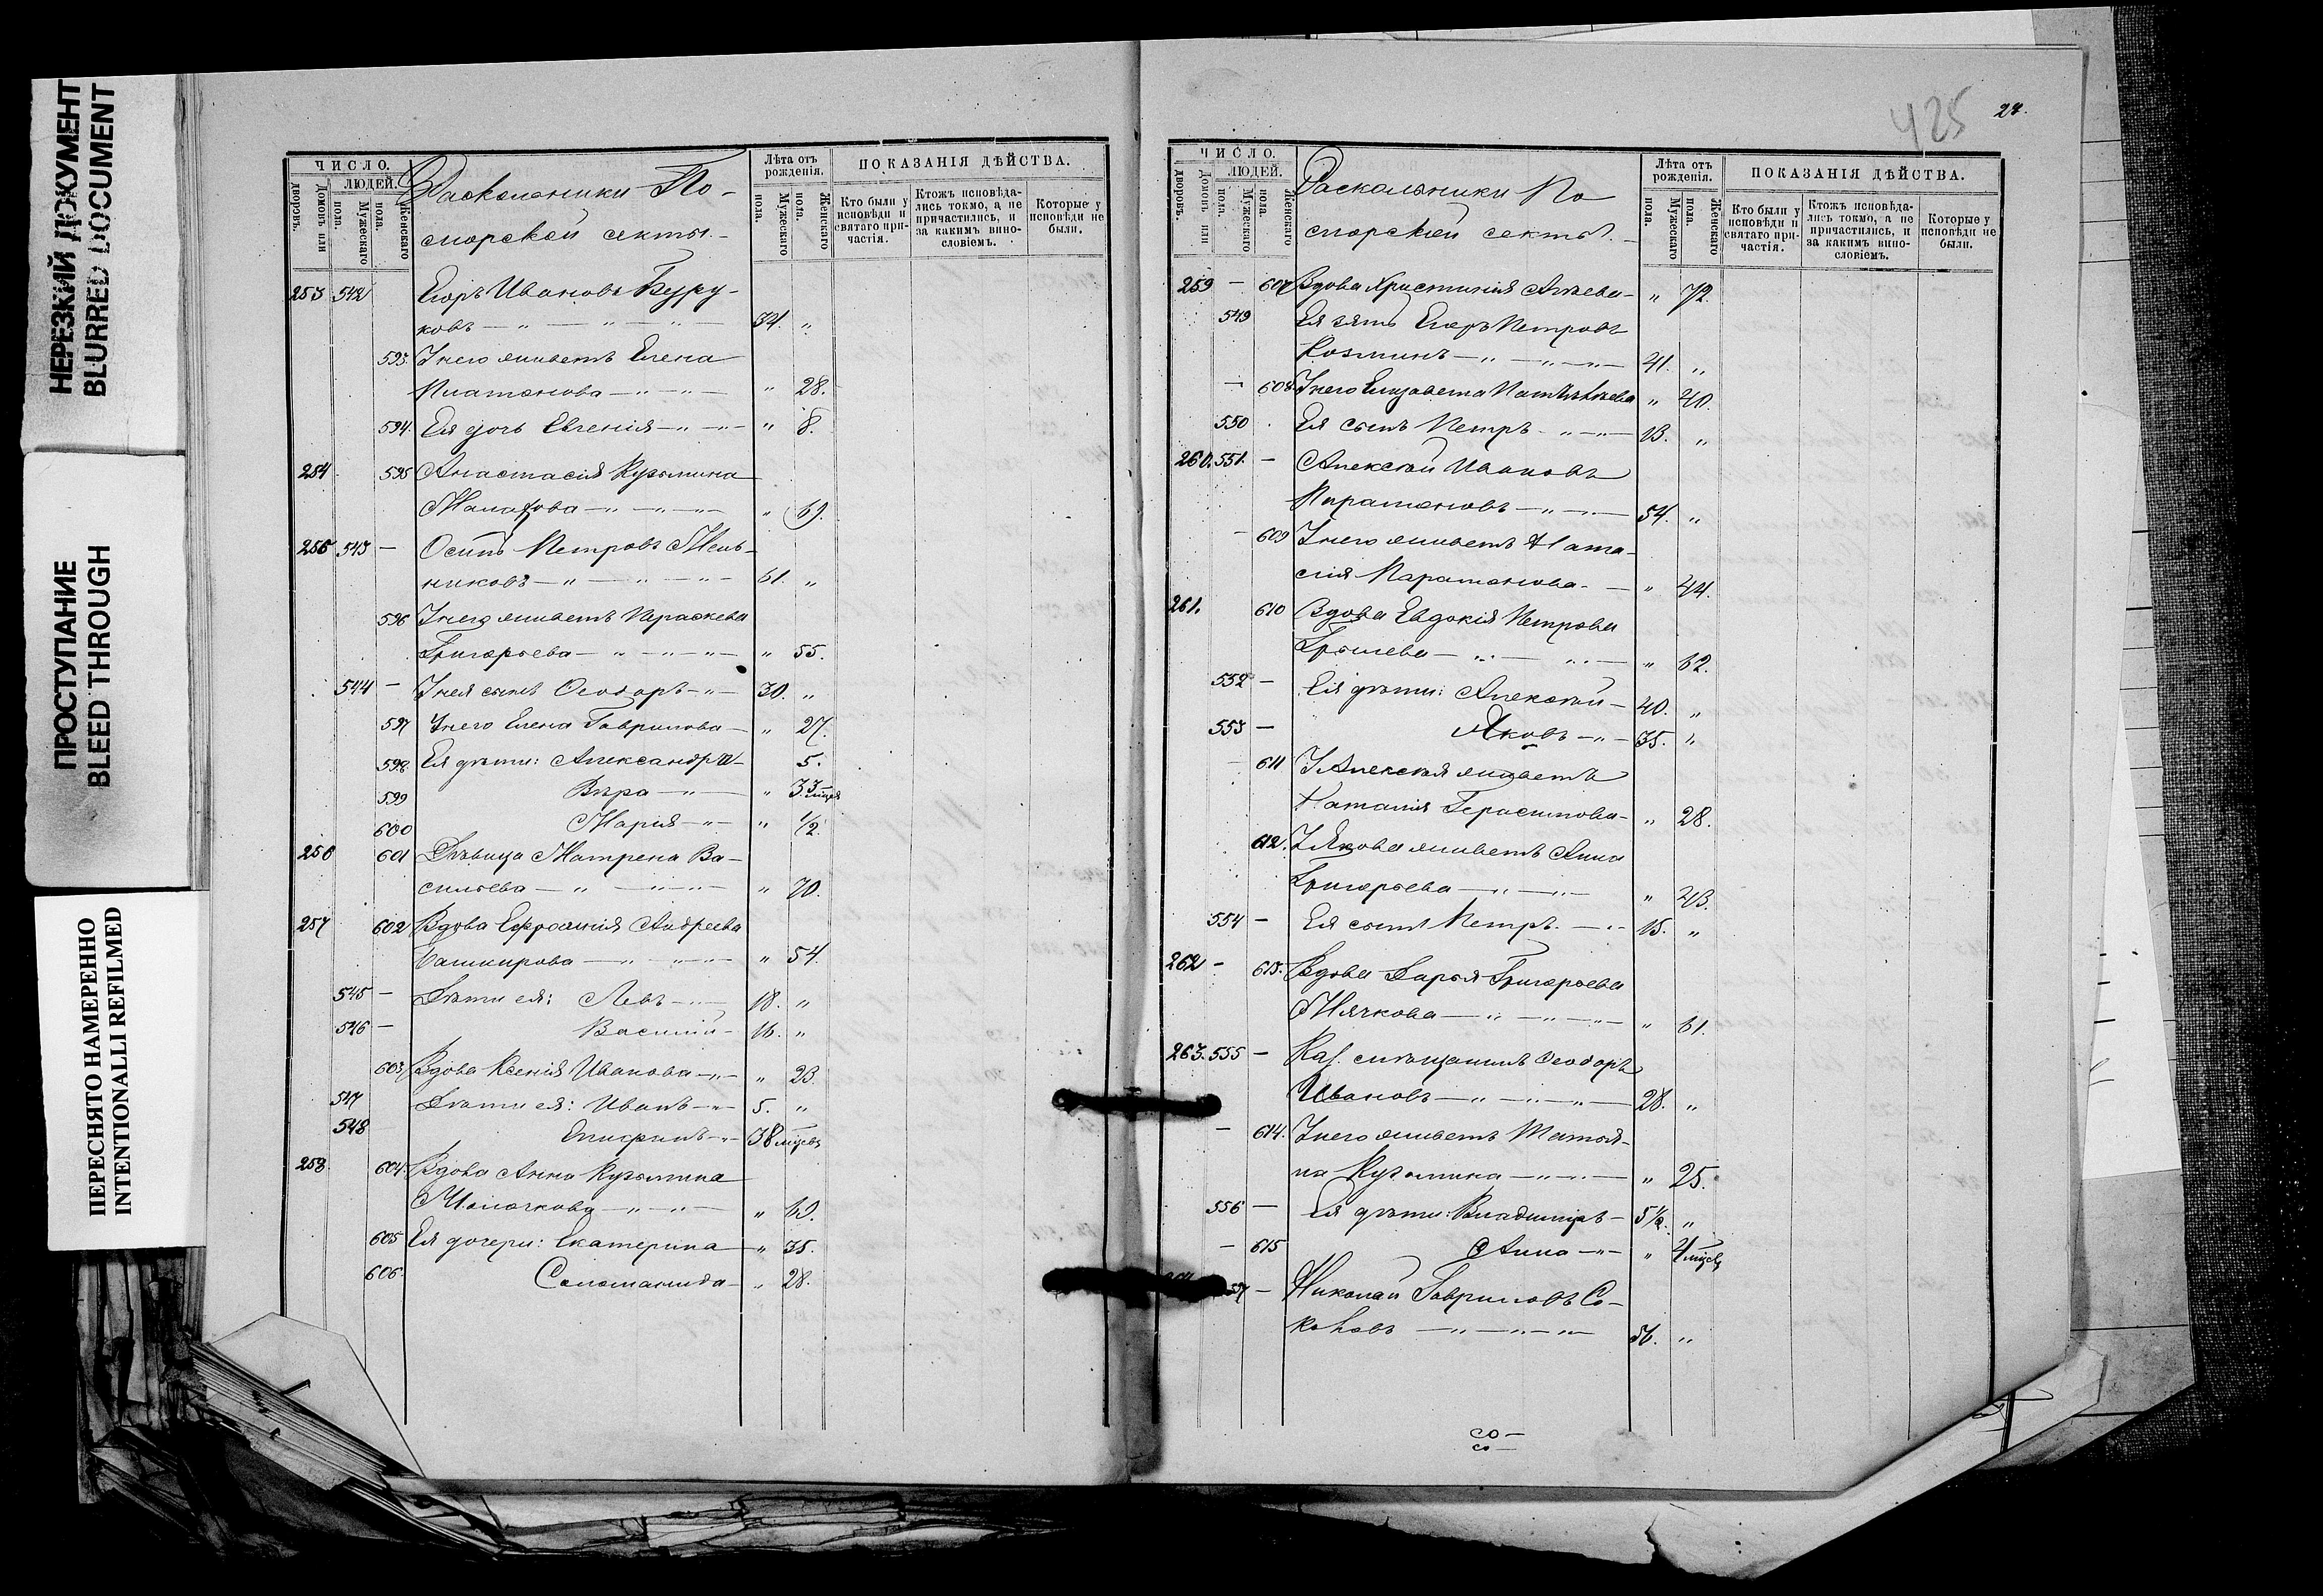 НЕРЕЗКИЙ ДОКУМЕНТ
BLURRED DOCUMENT
ПРОСТУПАНИЕ
BLEED THROUGH
ПЕРЕСНЯТО НАМЕРЕННО
INTENTIONALLI REFILMED
ЧИСЛО.
Домовъ или дворовъ.
ЛЮДЕЙ.
Мужескаго пола.
Женскаго пола.
Раскольники По-
морской секты.
Лѣта отъ рожденія.
Мужескаго пола.
Женскаго пола.
ПОКАЗАНІЯ ДѢЙСТВА.
Кто были у исповѣди и святаго причастія.
Ктожъ исповѣда-
лись токмо, а не
причастились, и
за какимъ вино-
словіемъ.
Которые у
исповѣди не
были.
253 542 Егоръ Ивановъ Буру-
ковъ — " — " — " — 34. "
593. У него живетъ Елена
Платонова — " — " — " 28.
594. Ея дочь Евгенія — " — " — " 8.
254 595 Анастасія Кузьмина
— " — " — " — " 69.
255 543 — Осипъ Петровъ Мель-
никовъ — " — " — " — 61. "
596 У него живетъ Параскева
Григорьева — " — " — " — " 55.
544 — У нея сынъ Ѳеодоръ — " — 30. "
597 У него Елена Гаврилова — " 27.
598. Ея дѣти: Александра — 5.
599 Вѣра — " — " 3 3 мцъ
600 Марія — " — " 1/2.
256 601 Дѣвица Матрена Ва-
сильева — " — " — " — " 70.
257 602 Вдова Ефросинія Андреева
Башкирова — " — " — " — " 54.
545 — Дѣти ея: Левъ — " — 18. "
546 — Василій — 16. "
603 Вдова Ксенія Иванова — " — " 23.
547 Дѣти ея: Иванъ — " — 5. "
548 — " — 3 8 мцевъ
258. 604. Вдова Анна Кузьмина
Молочкова — " — " — " 69.
605 Ея дочери: Екатерина — " 35.
606. Соломанида — " 28.
425
27.
ЧИСЛО.
Домовъ или дворовъ.
ЛЮДЕЙ.
Мужескаго пола.
Женскаго пола.
Раскольники По
морской секты.
Лѣта отъ рожденія.
Мужескаго пола.
Женскаго пола.
ПОКАЗАНІЯ ДѢЙСТВА.
Кто были у исповѣди и святаго причастія.
Ктожъ исповѣда-
лись токмо, а не
причастились, и
за какимъ вино-
словіемъ.
Которые у
исповѣди не
были.
259 — 607 Вдова Христинія — " 72.
549 Ея зять Егоръ Петровъ
Козминъ — " — " — " — 41. "
— 608. У него Елизавета — " 40.
550 Ея сынъ Петръ — " — " — 13. "
260. 551. — Алексѣй Ивановъ
Парамоновъ — " — " — 54. "
— 609 У него живетъ Ната-
лія Парамонова — — " 44.
261. 610 Вдова Евдокія Петрова
— " — " — " 62.
552 — Ея дѣти: Алексѣй — 40. "
553 — Яковъ — " — 35. "
— 611 У Алексѣя живетъ
Наталія Герасимова — " 28.
612. У Якова живетъ Анна
Григорьева — " — " — " 43.
554 — Ея сынъ Петръ — " — 15. "
262 — 613. Вдова Дарья Григорьева
Мячкова — " — " — " — " 61.
263. 555 — Каз. мѣщанинъ Ѳеодоръ
Ивановъ — " — " — " — 28. "
— 614. У него живетъ Татья-
на Кузьмина — " — " — " 25.
556 — Ея дѣти: Владиміръ — 5 1/2. "
— 615 Анна — " — " 4 мцев
57 — Николай Гавриловъ Со-
— " — " — " — 56. "
со —
со —